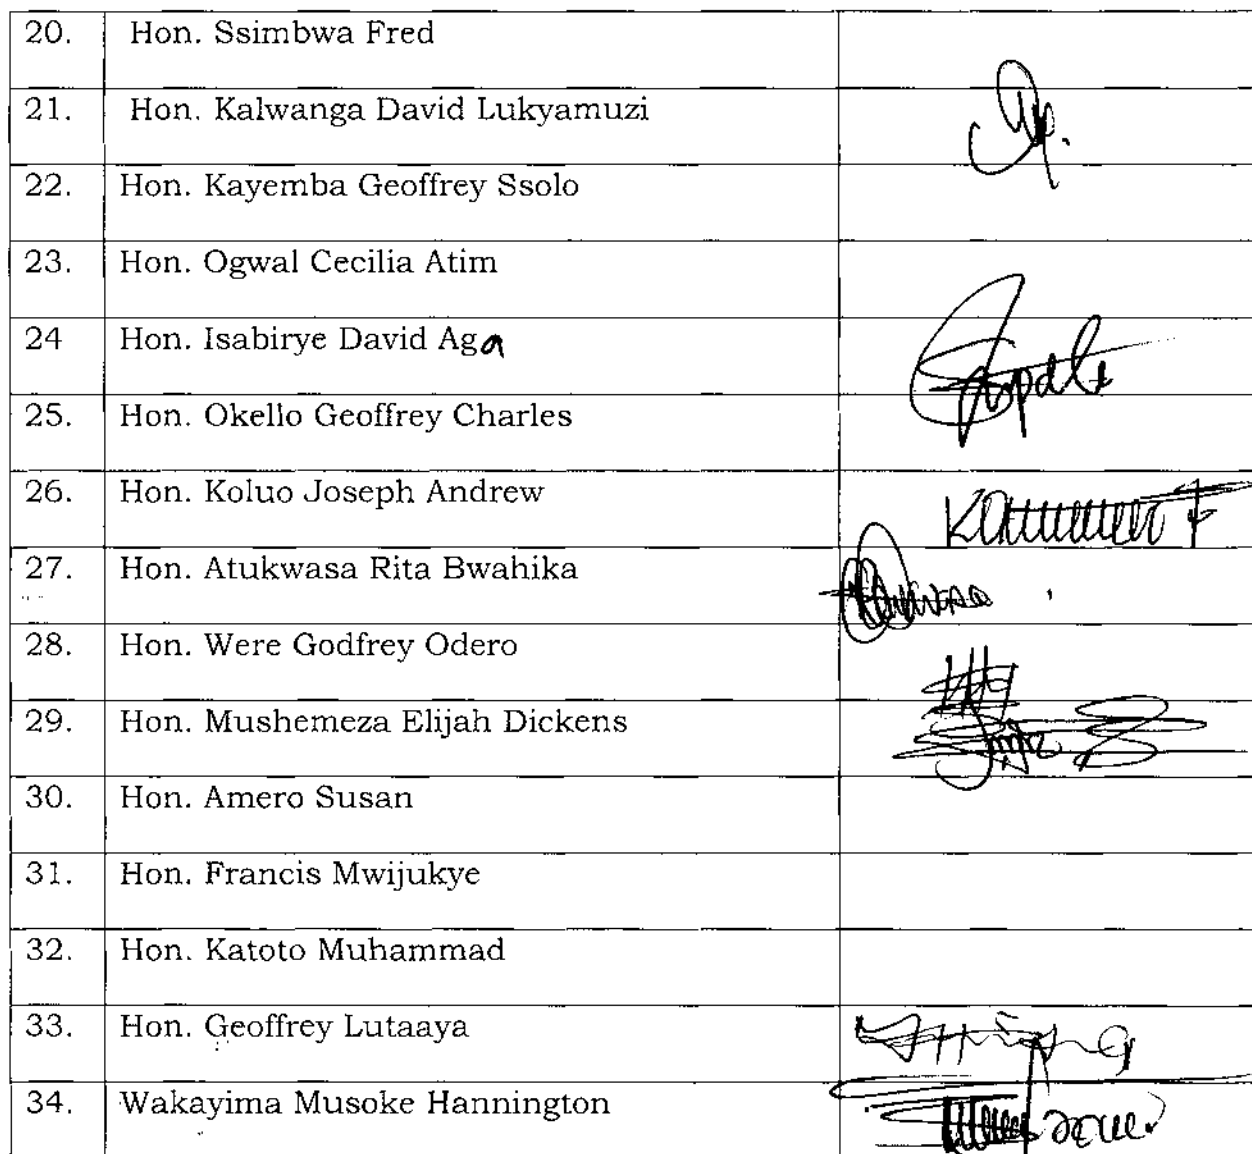 20. Hon. Ssimbwa Fred
21. Hon. Kalwanga David Lukyamuzi
22. Hon. Kayemba Geoffrey Ssolo
23. Hon. Ogwal Cecilia Atim
24 Hon. Isabirye David Aga
25. Hon. Okello Geoffrey Charles
26. Hon. Koluo Joseph Andrew
27. Hon. Atukwasa Rita Bwahika
28. Hon. Were Godfrey Odero
29. Hon. Mushemeza Elijah Dickens
30. Hon. Amero Susan
31. Hon. Francis Mwijukye
32. Hon. Katoto Muhammad
33. Hon. Geoffrey Lutaaya
34. Wakayima Musoke Hannington